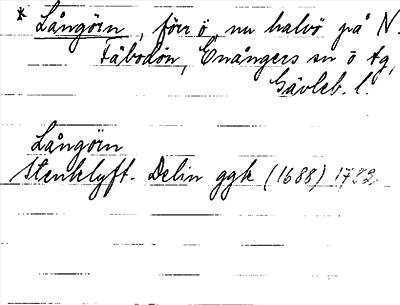 * Långörn, förr ö, nu halvö på N.
Fäbodön, Enångers sn ö tg,
Gävleb. l.
Långörn
Stenklyft- Delin ggk (1688) 1722